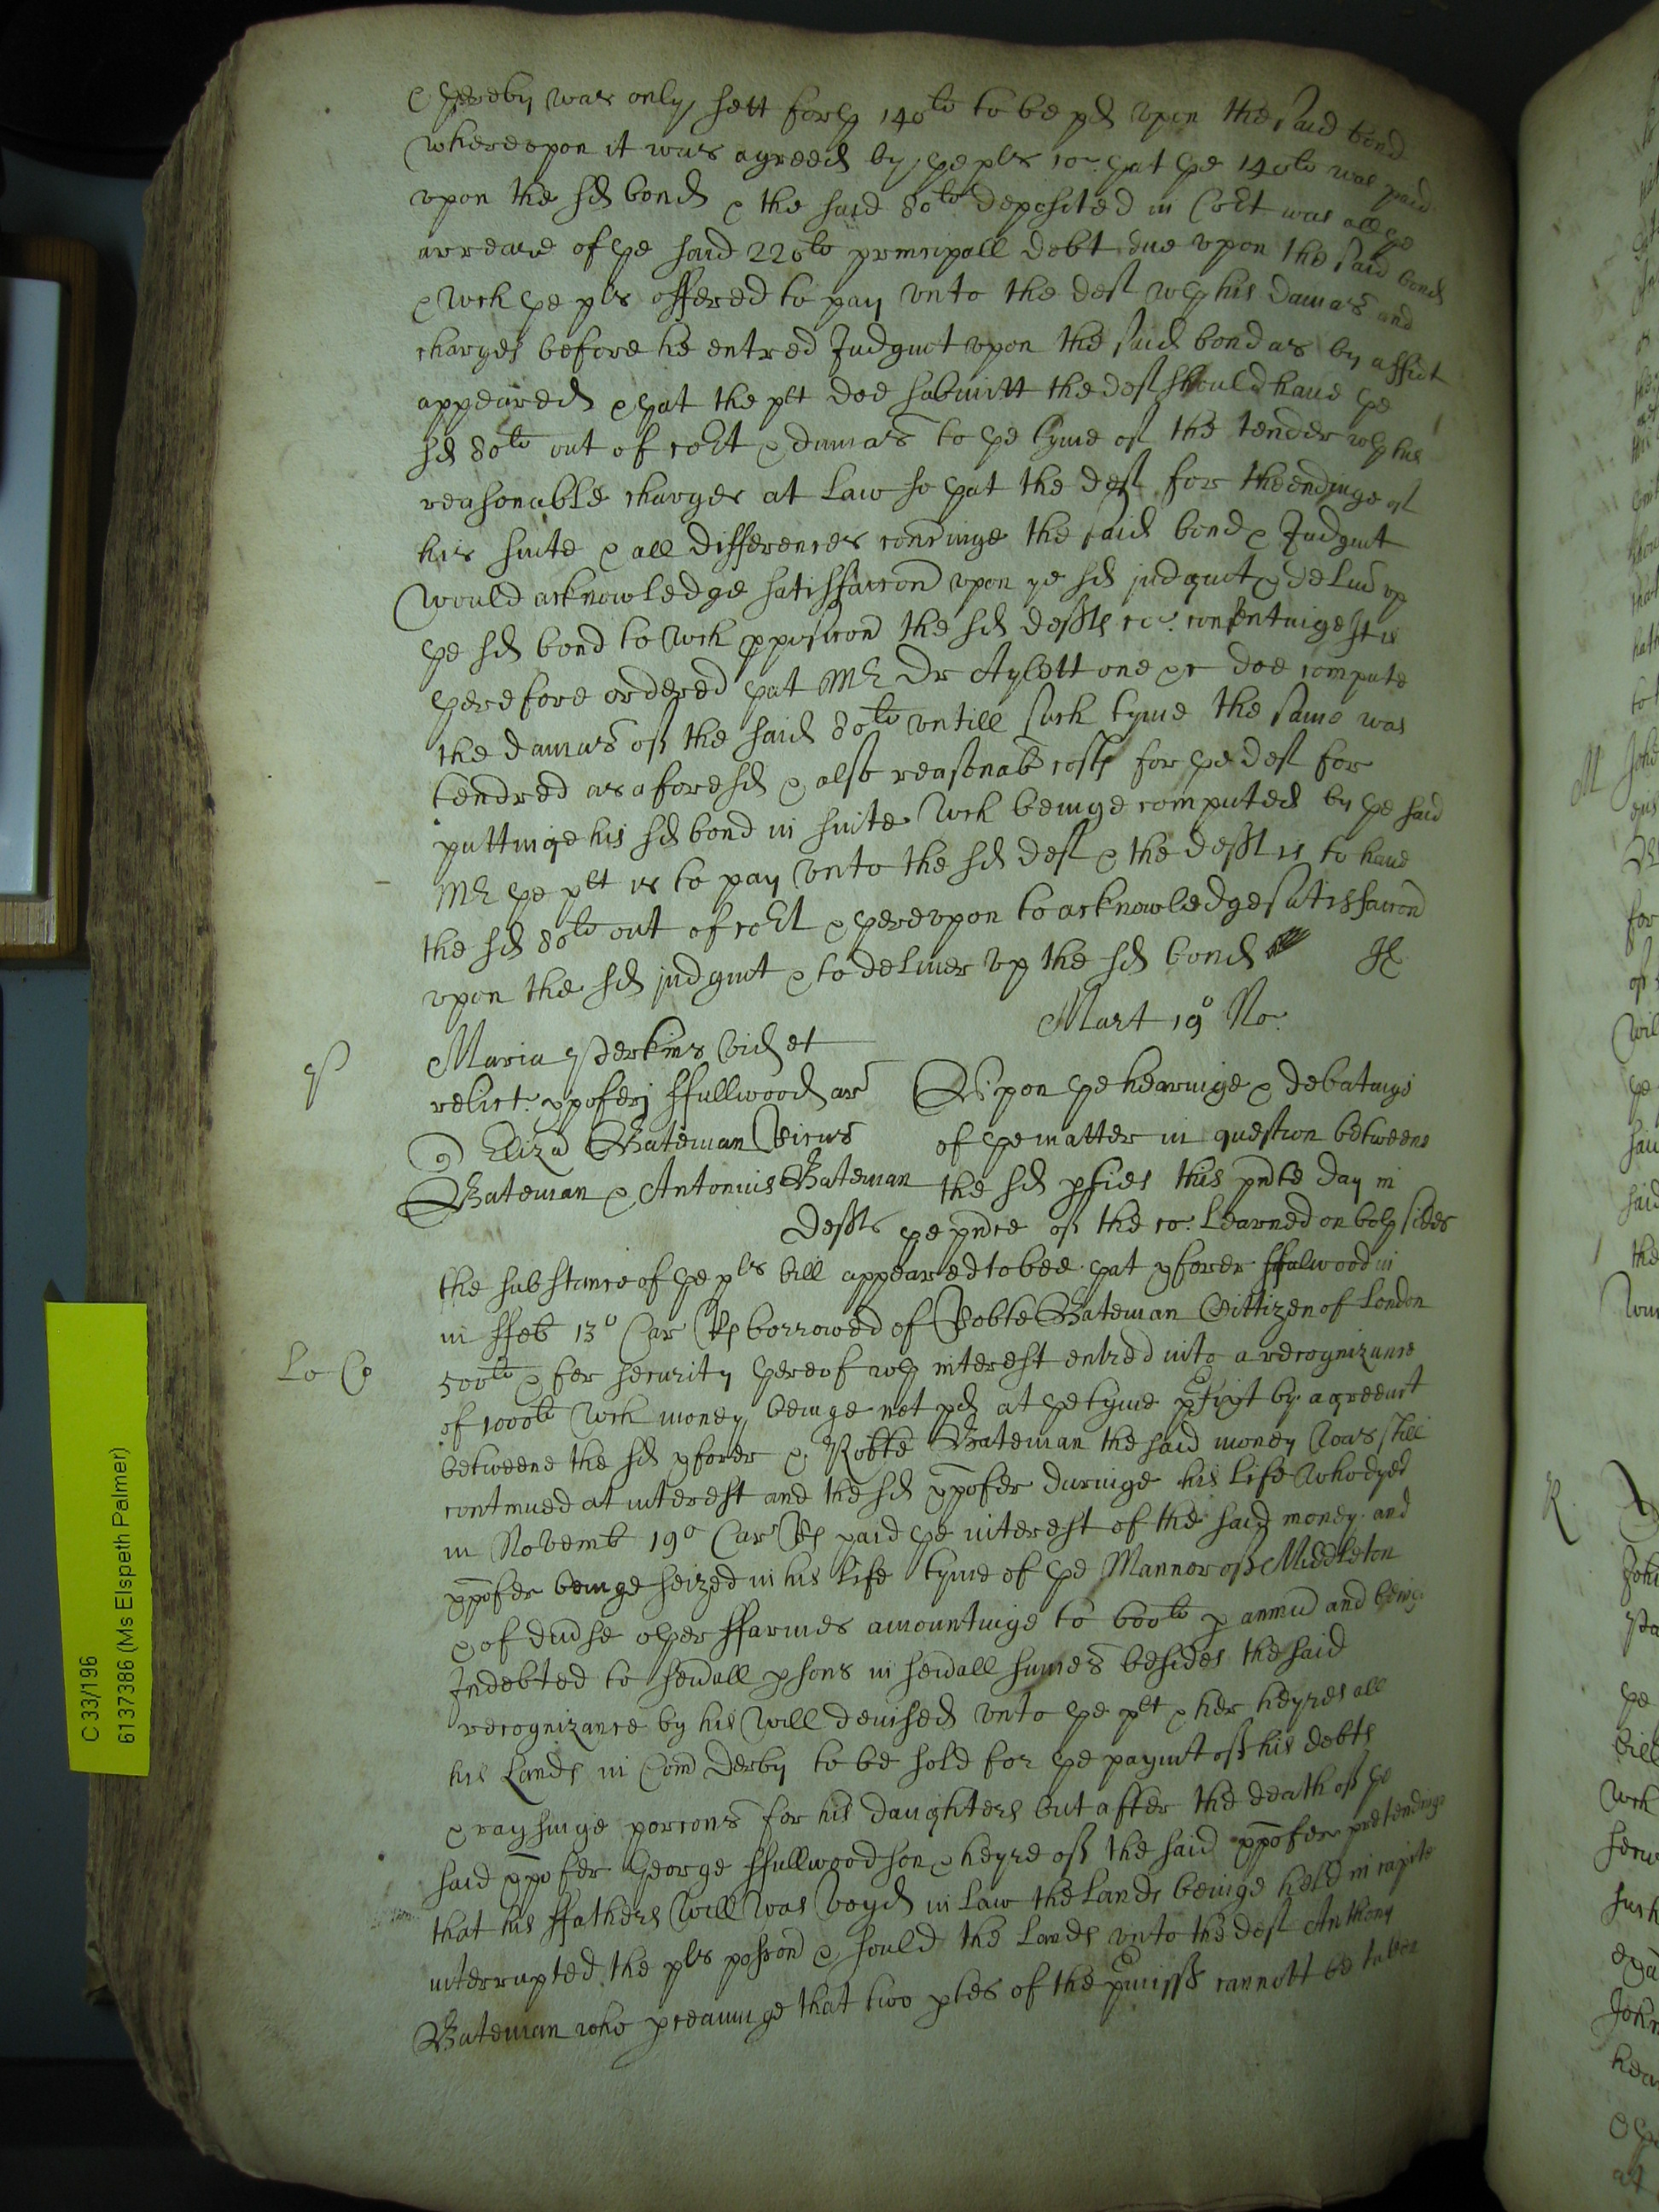 & thereby was only sett forth 140li to be pd upon the said bond
whereupon it was agreed by the pls co: that the 140li was paid
upon the sd bond & the said 80li deposited in Cort was all the
arreare of the said 220li principall debt due upon the said bond
& wch the pls offered to pay unto the deft wth his damas and
charges before he entred Judgmt upon the said bond as by affidt
appeared & that the plt doe submitt the deft should have the
sd 80li out of cort & damas to the tyme of the tender wth his
reasonable charges at Law so that the deft for the endinge of
his suite & all differences concinge the said bond & Judgmt
would acknowledge satisfaccon upon ye sd judgmt & deliv up
the sd bond to wch pposicon the sd defts co: consentinge It is
therefore ordered that Mr Dr Aylett one &c doe compute
the damas of the said 80li untill such tyme the same was
tendred as aforesd & also reasonab costs for the deft for
puttinge his sd bond in suite wch beinge computed by the said
Mr the plt is to pay unto the sd deft & the deft is to have
the sd 80li out of cort & thereupon to acknowledge satisfaccon
upon the sd judgmt & to deliver up the sd bond
Mart 19o
P
Maria Perkins vid et
relict. xpoferi ffullwood ar
Eliza Bateman
Bateman & Antonius Bateman
defts
Upon the hearinge & debatinge
of the matter in question betweene
the sd pties this pnte day in
the pnce of the co: Learned on both sides
the substance of the pls bill appeared to bee that xpofer ffulwood in
in ffeb 13o Car Rs borrowed of Robte Bateman Cittizen of London
Lo Co
500li & for security thereof wth interest entred into a recognizance
of 1000li wch money beinge not pd at the tyme pfixt by agreemt
betweene the sd xpofer & Robte Bateman the said money was still
continued at interest and the sd xpofer duringe his life who dyed
in Novemb 19o Car Rs paid the interest of the said money and
xpofer beinge seized in his life tyme of the Mannor of Middleton
& of divse other ffarmes amountinge to 600li p annu and beinge
Indebted to sevall psons in sevall sumes besides the said
recognizance by his Will devised unto the plt & her heyres all
his Lands in Com Derby to be sold for the paymt of his debts
& raysinge porcons for his daughters but after the death of the
said xpofer George ffullwood son & heyre of the said xpofer pretendinge
that his ffathers Will was voyd in Law the Lands beinge held in capite
interrupted the pls possion & sould the Lands unto the deft Anthony
Bateman who that two ptes of the pmisss cannott be taken
C 33/196
6137386 (Ms Elspeth Palmer)